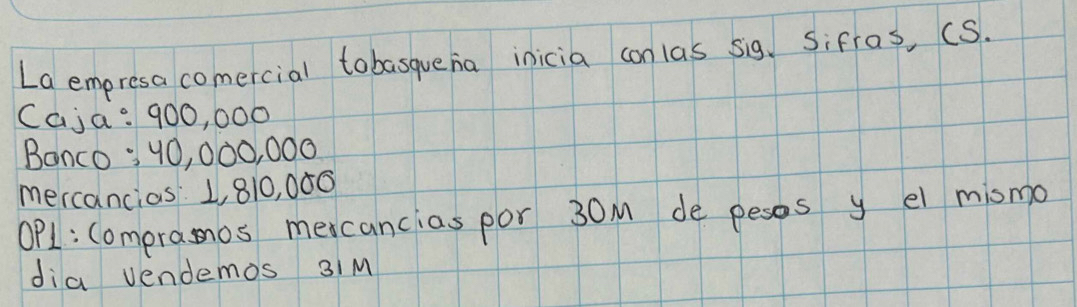 La empresa comercial tobasqueña inicia con las sig. Sifras, CS.
Caja: 900,000
Banco: 40,000,000
mercancias: 1,810,000
OP1: Compramos mercancias por 30M de pesos y el mismo
dia vendemos 31M